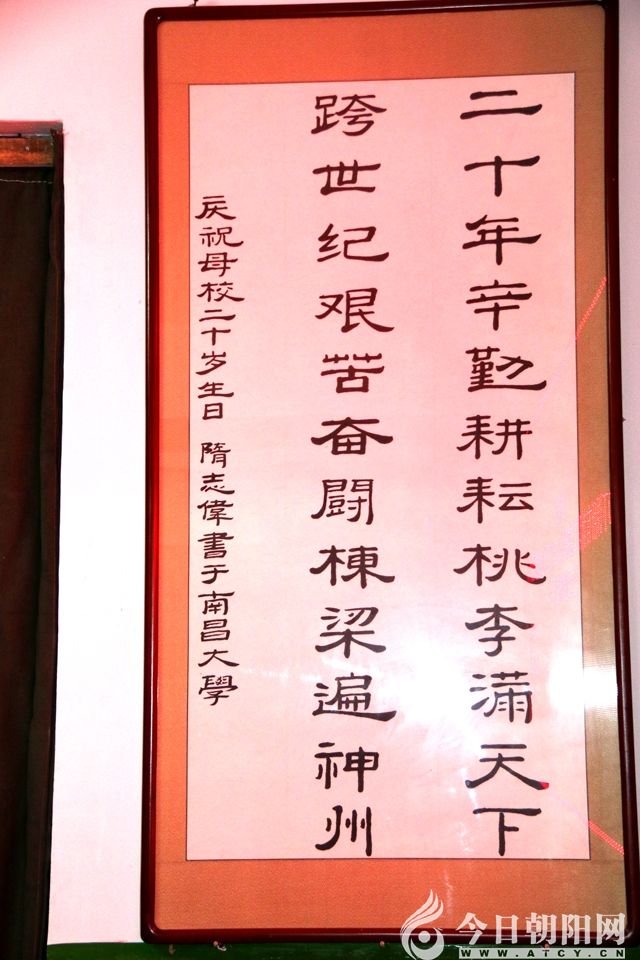 二十年辛勤耕耘桃李满天下
跨世纪艰苦奋闘栋梁遍神州
庆祝母校二十岁生日 隋志偉書于南昌大學
今日朝阳网
WWW.ATCY.CN